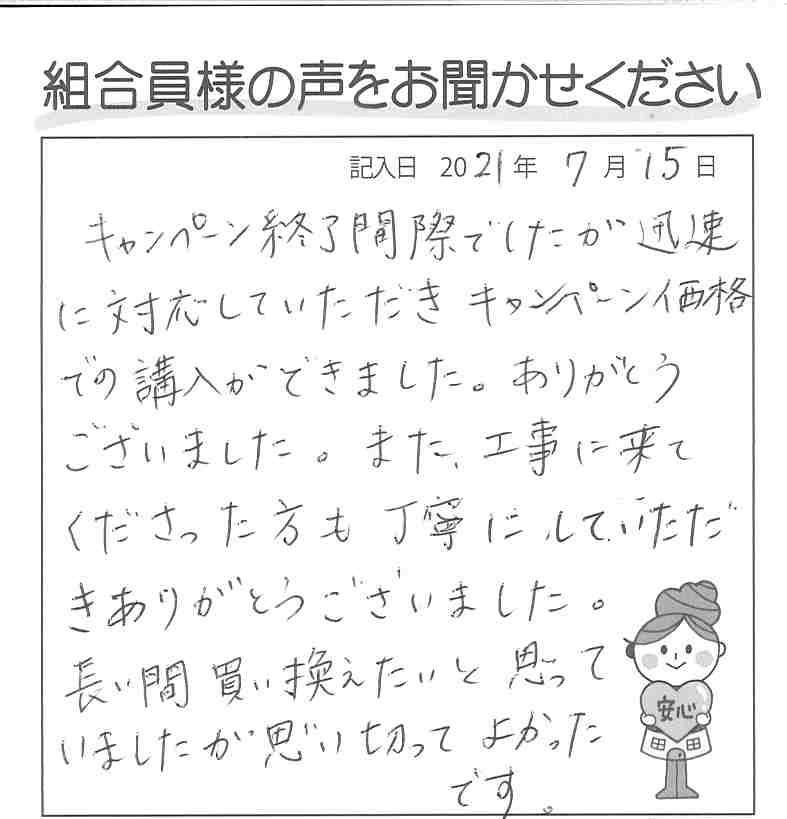 組合員様の声をお聞かせください
記入日 2021年 7月15日
キャンペーン終了間際でしたが迅速
に対応していただき キャンペーン価格
での講入ができました。ありがとう
ございました。また、工事に来て
くださった方も丁寧にしていただ
きありがとうございました。
長い間買い換えたいと思って
いましたが思い切ってよかった
です。
安心